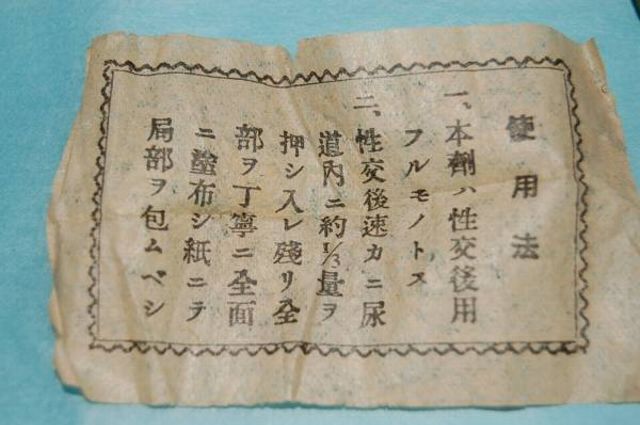 使用法
一、本劑ハ性交後用
フルモノトス
二、性交後速カニ尿
道內ニ約⅓量ヲ
押シ入レ殘リ全
部ヲ丁寧ニ全面
ニ塗布シ紙ニテ
局部ヲ包ムベシ